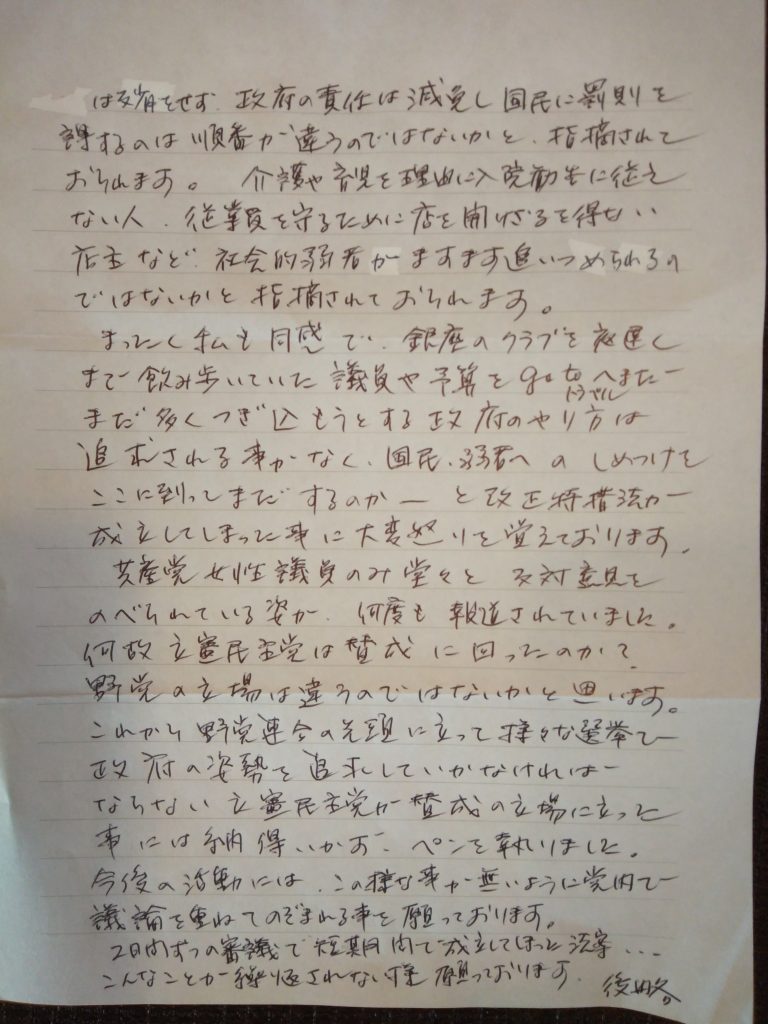 は反省をせず、政府の責任は減免し国民に罰則を
課するのは順番が違うのではないかと、指摘されて
おられます。 介護や育児を理由に入院勧告に従え
ない人、従業員を守るために店を開けざるを得ない
店主など、社会的弱者がますます追いつめられるの
ではないかと指摘されておられます。
まったく私も同感で、銀座のクラブを夜遅く
まで飲み歩いていた議員や予算をgo toトラベルへまだ
まだ多くつぎ込もうとする政府のやり方は
追求される事がなく、国民、弱者へのしめつけを
ここに到ってまだするのか―と改正特措法が
成立してしまった事に大変怒りを覚えております。
共産党女性議員のみ堂々と反対意見を
のべられている姿が、何度も報道されていました。
何故立憲民主党は賛成に回ったのか?
野党の立場は違うのではないかと思います。
これから野党連合の先頭に立って様々な選挙で
政府の姿勢を追求していかなければ
ならない立憲民主党が賛成の立場に立った
事には納得いかず、ペンを執りました。
今後の活動には、この様な事が無いように党内で
議論を重ねてのぞまれる事を願っております。
2日間ずつの審議で短期間で成立してしまった法案...
こんなことが繰り返されない様願っております。 後略